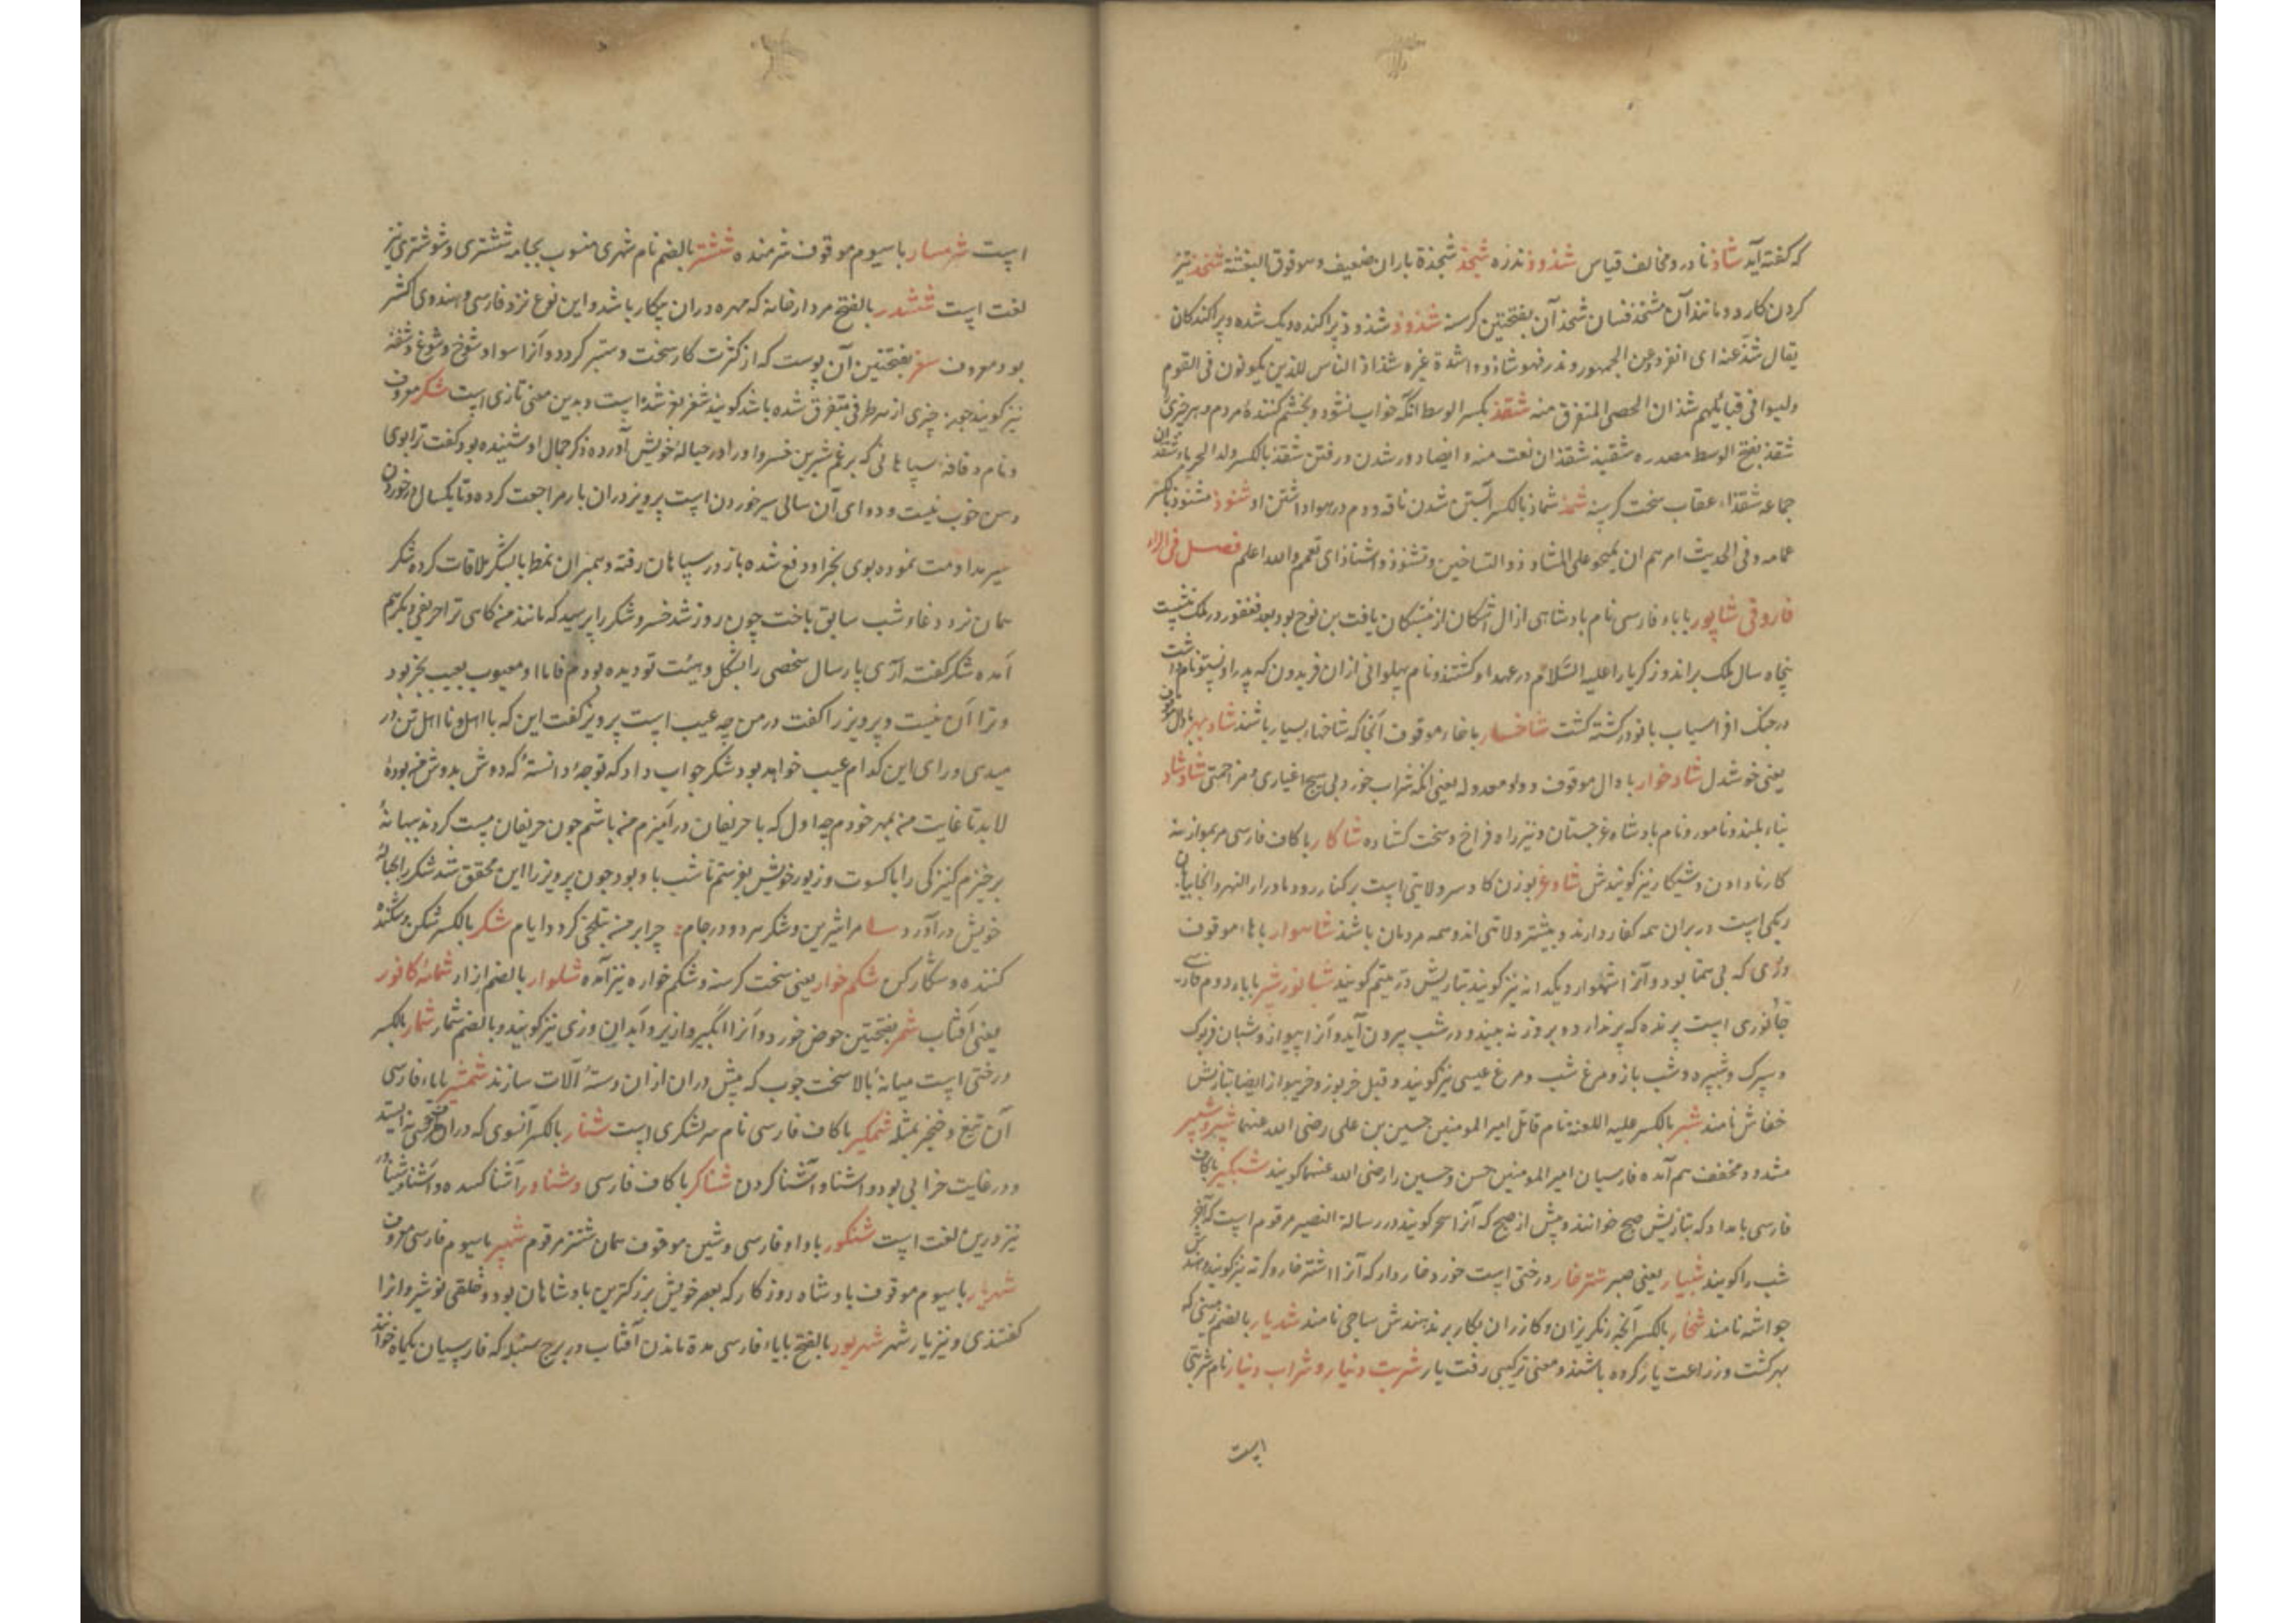 که گفته آید شاذ نادر و مخالف قیاس شذوذ ندره شجذ شجذة باران ضعیف و موقوق البغشة شحذ تیز
کردن کارد و مانند آن مشحذ فسان شحذ آن بفتحتین گرسنه شذوذ شذوذ پراکنده و یک شده و پراکندکان
یقال شذ عنه ای انفرد عن الجمهور و ندر فهو شاذ و اشذه غیره شذاذ الناس للذین یکونون فی القوم
ولیسوا فی قبائلهم شذان الحصی المتفرق منه شقذ بکسر الوسط آنکه خواب نشود و بخشم کننده مردم و هر چیزی
شقذ بفتح الوسط مصدره شقیذ شقذان نعت منه و ایضا دور شدن و رفتن شقذ بالکسر ولد الحرباء شقذان
جماعه شقذاء عقاب سخت گرسنه شمذ شماذ بالکسر آبستن شدن ناقه و دم در هوا داشتن او شنوذ مشنوذ بالکسر
عمامه وفی الحدیث امرهم ان یمسحوا علی المشاوذ والتساخین وتشوذ واشتاذ ای تعمم والله اعلم فصل فی الراء
فاروقی شاپور باباء فارسی نام بادشاهی از ال اشکان از خشکان یافت بن نوح بود بعد فغفور در ملک بنشست
پنجاه سال ملک براند و زکریا را علیه السلام در عهد او کشتند و نام پهلوانی از ان فریدون که پدر او نستوه نام داشت
در جنک افراسیاب با نوذر کشته کشت شاخسار با خاء موقوف آنجا که شاخهاء بسیار باشند شاد بهر با دال موقوف
یعنی خوشدل شاد خوار با دال موقوف و واو معدوله یعنی آنکه شراب خورد بی هیچ اغیاری و مزاحمتی شاد شاد
بناء بلند و نامور و نام بادشاه غرجستان و نیز راه فراخ و سخت کشاده شاکار با کاف فارسی مر بمواز نه
کار نادادن و شیکار نیز کویندش شاوغر بوزن کادسر ولایتی است بر کنار رود ماوراء النهر و انجا بیابان
ریکی است در بران همه کفار دارند و بیشتر ولایتی اند و همه مردمان باشند شاهوار با هاء موقوف
دری که بی همتا بود و آنرا شهوار و یکدانه نیز کویند بتازیش در یتیم کویند شبانور شپر باباء دوم فارسی
جانوری است پرنده که پر ندارد و بروز نه بیند و در شب بیرون آید و آنرا بیواز و شبان فریوک
و سیرک و شپره و شب باز و مرغ شب و مرغ عیسی نیز کویند و قیل خربوز و خربیواز ایضا بتازیش
خفاش نامند شمر بالکسر علیه اللعنه نام قاتل امیر المومنین حسین بن علی رضی الله عنهما شبر و شبیر
مشدد و مخفف هم آمده فارسیان امیر المومنین حسن و حسین را رضی الله عنهما کویند شبکیر با کاف
فارسی بامداد که بتازیش صبح خوانند و پیش از صبح که آنرا سحر کویند در رسالة النصیر مرقوم است که آخر
شب را کویند شبیار یعنی صبر شترخار درختی است خورد خاردار که آنرا اشترخار و کرته نیز کویند و هندش
جوانسه نامند شخار بالکسر آنچه رنکریزان و کازران بکار برند هندش ساجی نامند شدیار بالضم زمینی که
بهر کشت و زراعت یار کرده باشند و معنی ترکیبی رفت یار شربت دینار و شراب دینار نام شربتی
است
است شرمسار با سیوم موقوف شرمنده ششتر بالضم نام شهری منسوب بجامه ششتری و شوشتری نیز
لغت است ششدر بالفتح مردارخانه که مهره دران بیکار باشد و این نوع نزد فارسی و هندوی اکثر
بود معروف سغر بفتحتین آن پوست که از کثرت کار سخت و ستبر کردد و آنرا سواد شوخ و شوغ و شغه
نیز کویند چون چیزی از هر طرفی متفرق شده باشد کویند شغر بغر شد است و بدین معنی تازی است شکر معروف
و نام و قافه سپاهانی که برغم شیرین خسرو او را در حباله خویش آورده ذکر جمال او شنیده بود گفت ترا بوی
دهن خوب نیست و دوای آن سالی سیر خوردن است پرویز دران بار مراجعت کرده و تا یکسال در خوردن
سیر مداومت نموده بوی بخر او دفع شده باز در سپاهان رفته و همبران نمط با شکر ملاقات کرده شکر
همان نرد دغا و شب سابق باخت چون روز شد خسرو شکر را پرسید که مانند من کاهی ترا حریفی دیکر هم
آمده شکر گفت آری پارسال شخصی را بشکل و هیئت تو دیده بودم فاما او معیوب بعیب بخر بود
و ترا آن نیست و پرویز را گفت در من چه عیب است پرویز گفت این که با اهل و نا اهل تن در
میدهی ورای این کدام عیب خواهد بود شکر جواب داد که تو چه دانسته که دوش بدوش من بوده
لابد تا غایت من بمهر خودم چه اول که با حریفان در آمیزم من باشم چون حریفان مست کردند ببهانه
برخیزم کنیزکی را با کسوت و زیور خویش بفرستم تا شب با او بود چون پرویز را این محقق شد شکر را بحباله
خویش در آورد مرا شیرین و شکر هر دو در جام چرا بر من بتلخی کردد ایام شکر بالکسر شکن و شکننده
کننده و شکار کن شکم خوار یعنی سخت گرسنه و شکم خواره نیز آمده شلوار بالضم ازار شمامه کافور
یعنی آفتاب شمر بفتحتین حوض خورد و آنرا آبکیر و ازیر و آبدان وزی نیز کویند و بالضم شمار شمار بالکسر
درختی است میانه بالا سخت چوب که بیش دران ازان دسته آلات سازند شمشیر باباء فارسی
آن تیغ و خنجر بمثله شمکیر با کاف فارسی نام سرلشکری است شنار بالکسر آنسوی که دران هیچ کسی نه ایستد
و در غایت خرابی بود و اشنا و آشنا کردن شناکر با کاف فارسی و شناور آشنا کننده و آشنا و شناه
نیز درین لغت است شنکور با واو فارسی و شین موقوف همان ششتر مرقوم شهپر با سیوم فارسی معروف
شهریار با سیوم موقوف بادشاه روزکار که بعصر خویش بزرکترین بادشاهان بود و خلقی نوشیروانرا
گفتندی و نیز یار شهر شهریور بالفتح باباء فارسی مدة ماندن آفتاب در برج سنبله که فارسیان یکماه خوانند